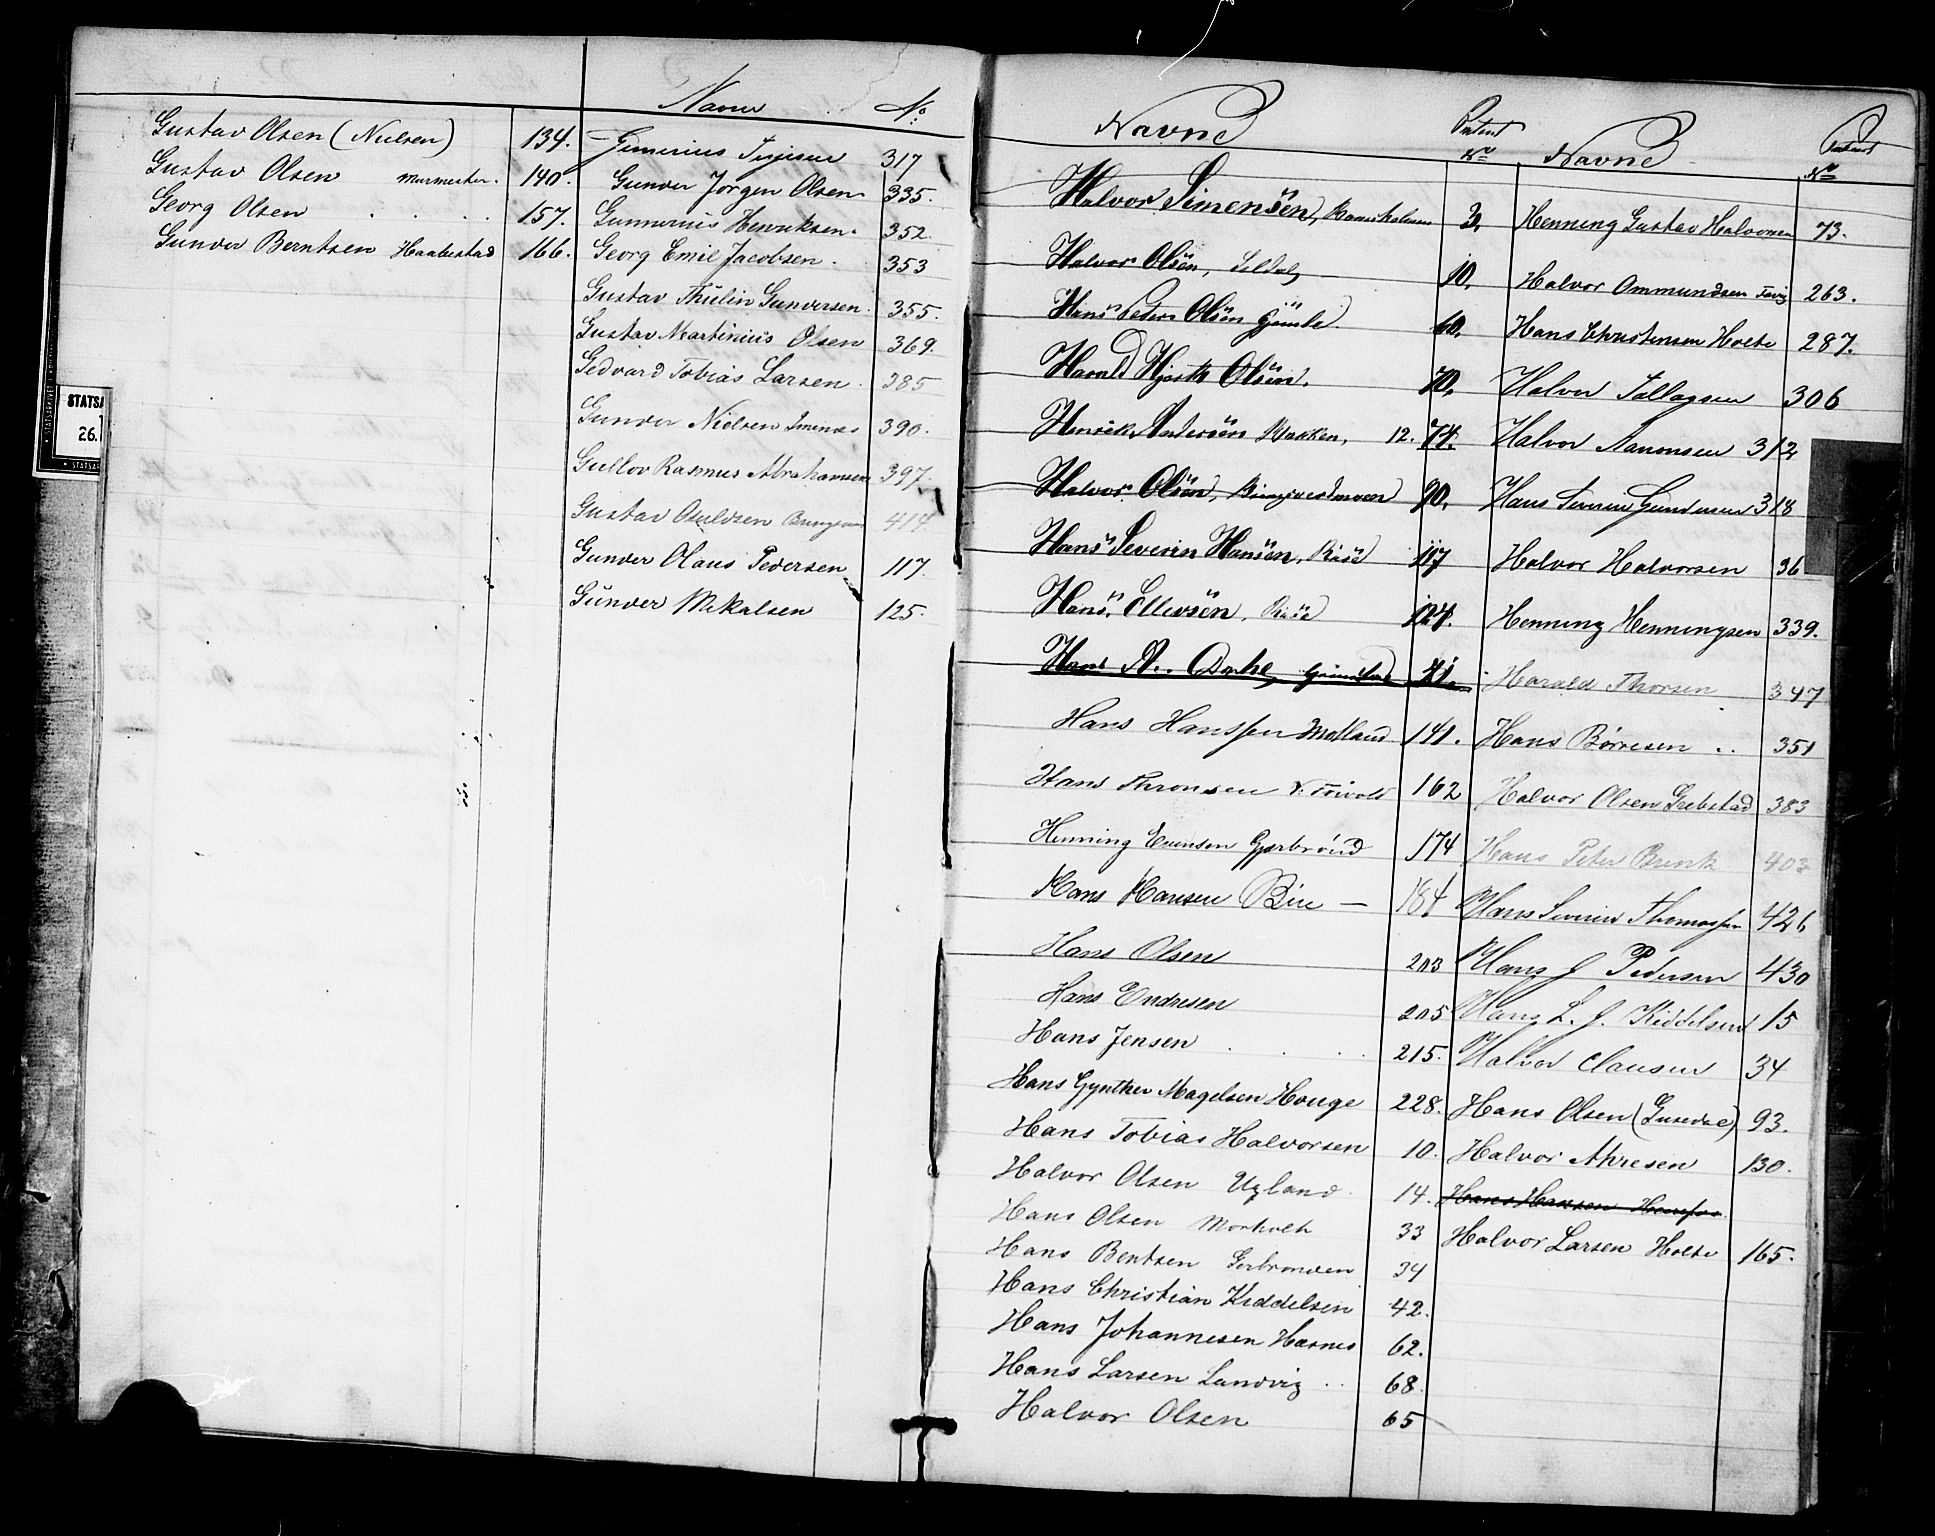 STATSA
26.
STATSA
Gustav Olsen (Nielsen) 134.
Gustav Olsen Murmester. 140.
Georg Olsen . . . . . 157.
Gunder Berntsen Haabestad 166.
Navne No
Gumerius 317
Gunder Jørgen Olsen 335.
Gunnerius Henriksen. 352.
Georg Emil Jacobsen. 353
Gustav Thulin Gundersen. 355.
Gustav Martinius Olsen 369.
Gedvard Tobias Larsen. 385
Gunder Nielsen Imenæs 390.
Gullov Rasmus Abrahamsen 397.
Gustav Osuldsen 414
Gunder Olaus Pedersen 117.
Gunder Mikalsen 125.
Navne Patent No
Halvor Simensen, 3.
Halvor Olsen, 10.
Hans Peder Olsen Gimle 60.
Harald Hjorth Olsen. 70.
Henrik Andersen Bakken, 12. 74.
Halvor Olsen, 90.
Hans Severin Hansen, Risø 117
Hans Ellevsen, Risø 124.
Hans A. Dahl, Grimstad 21.
Hans Hanssen Molland 141.
Hans Thronsen N. Törvold 162
Henning Evensen Gjerbrönd 174
Hans Hansen Bie — 184
Hans Olsen 203
Hans Endresen 205
Hans Jensen . . . . 215.
Hans Gynther Magelsen Houge 228.
Hans Tobias Halvorsen 10.
Halvor Olsen Ugland. 14.
Hans Olsen Morholt 33
Hans Bentsen Gerbronden 34
Hans Christian Kiddelsen 42.
Hans Johannesen Hasnes 62.
Hans Larsen Landvig . . 68.
Halvor Olsen 65
Navne Patent No
Henning Gustav Halvorsen 73.
Halvor Ommundsen 263.
Hans Christensen Holte 287.
Halvor Tallagsen 306
Halvor Aanonsen 312
Hans Severin Gundersen 318
Halvor Halvorsen 36
Henning Henningsen 339.
Harald Thorsen 347
Hans Børresen . . 351
Halvor Olsen Grebstad 383
Hans Peter Brink 403
Hans Severin Thomassen 426
Hans J Pedersen 430
Hans L. J. Kiddelsen 15
Halvor Clausen 34
Hans Olsen (Gusedal) 93.
Halvor Ahresen 130.
Hans Hansen
Halvor Larsen Holte 165.